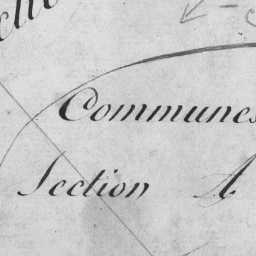 Communes
Section A